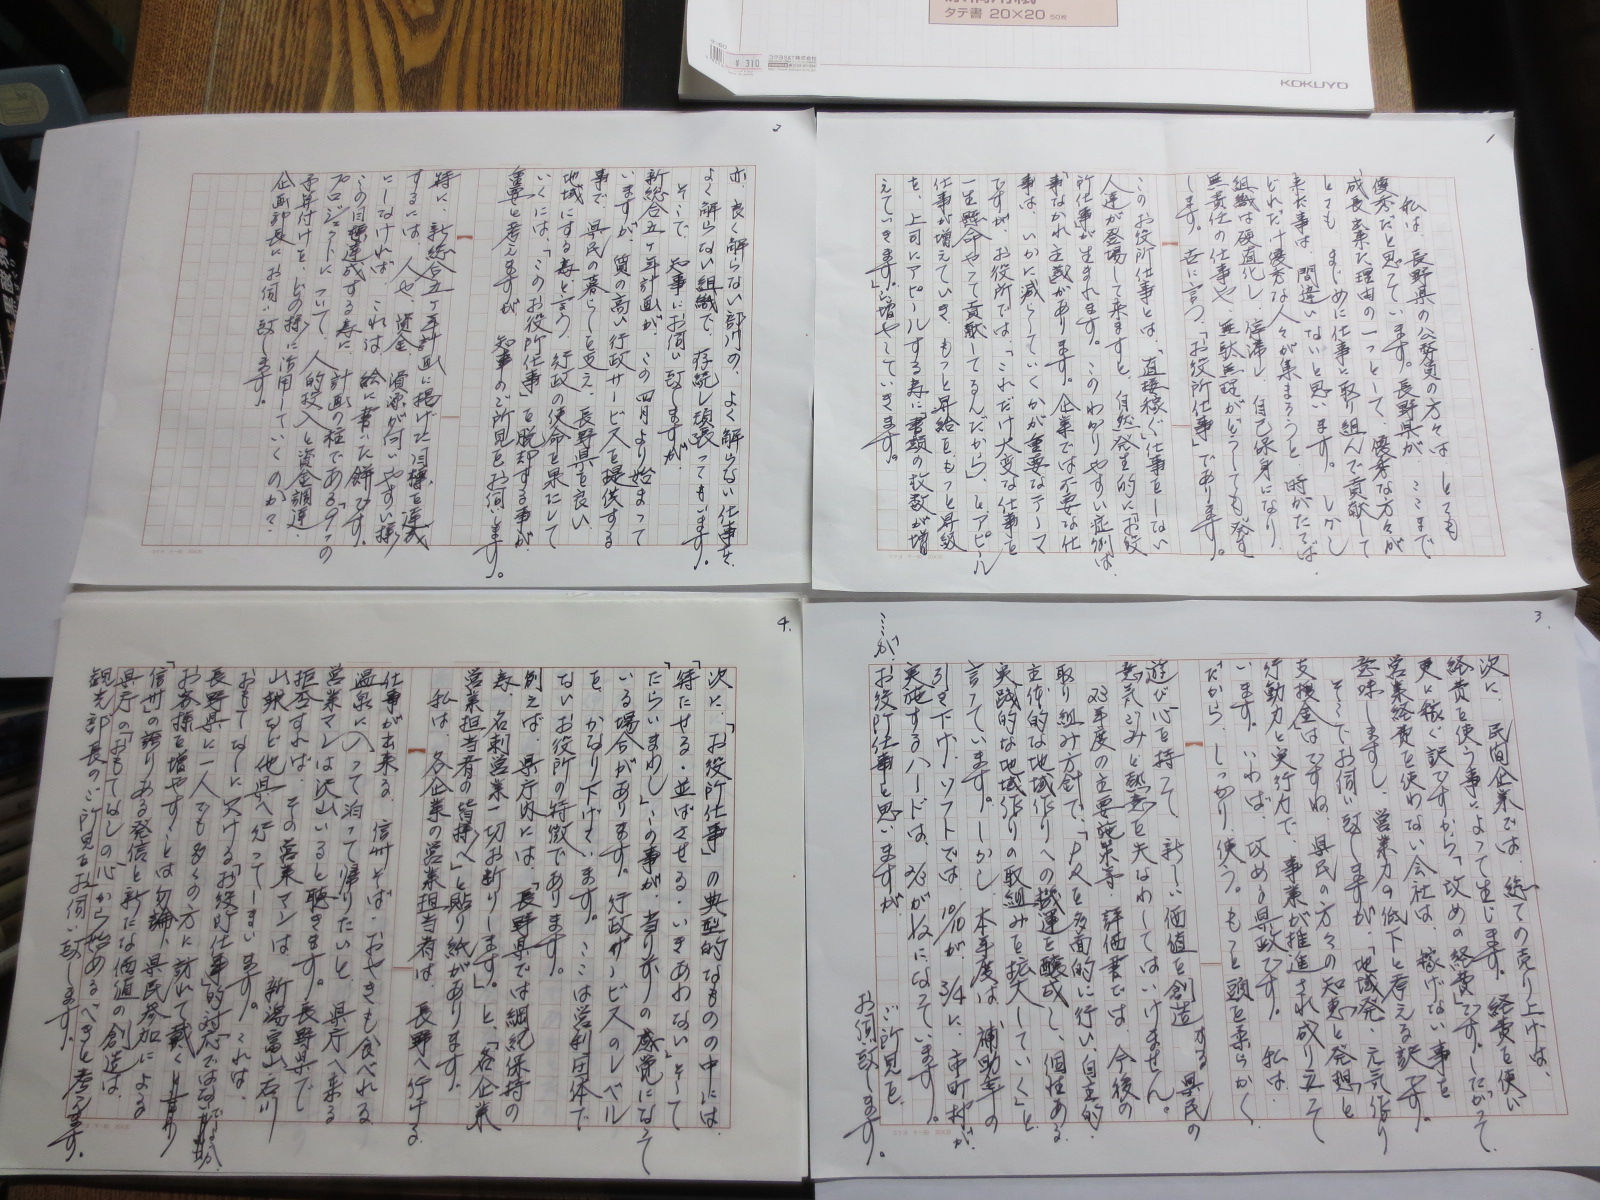 原稿用紙
タテ書 20×20 50枚
ケ-60
¥310
コクヨS&T株式会社
KOKUYO
1
私は、長野県の公務員の方々は とても
優秀だと思っています。長野県が、ここまで
成長出来た理由の一つとして、優秀な方々が
とても まじめに仕事に取り組んで貢献して
来た事は、間違いないと思います。しかし
どれだけ優秀な人々が集まろうと、時がたてば、
組織は硬直化し、停滞し、自己保身になり、
無責任の仕事や、無駄無理がどうしても発す
します。世に言う、「お役所仕事」であります。
このお役所仕事とは、「直接稼ぐ」仕事をしない
人達が登場して来ますと、自然発生的に「お役
所仕事が生まれます。このわかりやすい症例は、
事なかれ主義があります。企業では不要な仕
事は、いかに減らしていくかが重要なテーマ
ですが、お役所では、「これだけ大変な仕事を
一生懸命やって貢献してるんだから」、とアピール
仕事が増えていき、もっと昇給を、もっと昇級
を、上司にアピールする為に書類の枚数が増
えていきます。増やしていきます。
2
亦、良く解らない部門の、よく解らない仕事を、
よく解らない組織で、存続し頑張ってもいます。
そこで、知事にお伺い致しますが、
新総合五ヶ年計画が、この四月より始まって
いますが、質の高い行政サービスを提供する
事で、県民の暮らしを支え、長野県を良い
地域にする為と言う、行政の使命を果たして
いくには、「このお役所仕事」を脱却する事が、
重要と考えますが 知事のご所見をお伺します。
特に、新総合五ヶ年計画に掲げた目標を達成
するには、人や、資金、資源が伺いやすい様
にしなければ、これは 絵に書いた餅です。
この目標達成する為に、計画の柱である「9つの
プロジェクトについて、人的投入と資金調達、
予算付けを、どの様に活用していくのか?、
企画部長にお伺い致します。
3.
次に、民間企業では、総ての売り上げは、
経費を使う事によって生じます。経費を使い
更に稼ぐ訳ですから「攻めの経費」です。したがって
営業経費を使わない会社は、稼げない事を
意味しますし、営業力の低下と考える訳です。
そこでお伺い致しますが、「地域発 元気作り
支援金」ですね、県民の方々の知恵と発想と
行動力と実行力で、事業が推進され成り立って
います。いわば、攻める県政です。私は、
だから、しっかり、使う。もっと頭を柔らかく
遊び心を持って、新しい価値を創造する 県民の
意気ごみと熱意を失なわしてはいけません。
23年度の主要施策等 評価書では、今後の
取り組み方針で、「PRを多面的に行い自立的・
主体的な地域作りへの機運を醸成し、個性ある
実践的な地域作りの取組みを拡大していく」と
言っています。しかし 本年度は、補助率の
引き下げ、ソフトでは、10/10が、3/4に、市町村が
実施するハードは、2/3が1/2になっています。
…が、お役所仕事と思いますが、 ご所見を、
お伺い致します。
4.
次に、「お役所仕事」の典型的なものの中には、
「待たせる・並ばせる・いきあわない」そして
たらいまわし」、この事が、当り前の感覚になって
いる場合があります。行政サービスのレベル
を、かなり下げています。ここは営利団体で
ないお役所の特徴であります。
例えば、県庁内には、「長野県では綱紀保持の
為、名刺営業一切お断りします。と、「各企業
営業担当者の皆様へ」と貼り紙があります。
私は、各企業の営業担当者は、長野へ行ける
仕事が出来る、信州そば・おやきも食べれる
温泉に入って泊って帰りたいと、県庁へ来る
営業マンは沢山いると聴きます。長野県で
拒否すれば、その営業マンは、新潟・富山・石川
山梨など他県へ行ってしまいます。これは、
おもてなしに欠ける「お役所仕事」的対応ではないか
長野県に一人でも多くの方に訪れて戴くし
お客様を増やすことは勿論、県民参加による
「信州」の誇りある発信と新たな価値の創造は、
県庁の「おもてなしの心から始めるべきと考えます。
観光部長のご所見をお伺い致します。